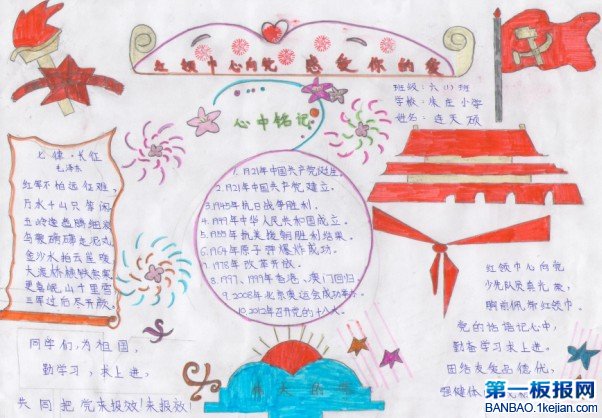 红领巾心向党 感受你的爱
班级:六(1)班
学校:朱庄小学
姓名:连天硕
心中铭记
七律·长征
毛泽东
红军不怕远征难,
万水千山只等闲
五岭逶迤腾细浪
乌蒙磅礴走泥丸
金沙水拍云崖暖
大渡桥横铁索寒
更喜岷山千里雪
三军过后尽开颜。
2.1921年中国共产党建立。
3.1945年抗日战争胜利。
4.1949年中华人民共和国成立。
6.1964年原子弹爆炸成功。
7.1978年改革开放。
8.1997、1999年香港、澳门回归。
9.2008年北京奥运会成功举办
10.2012年召开党的十八大。
红领巾心向党
少先队员真光荣,
胸前佩带红领巾。
党的话语记心中,
勤奋学习求上进。
团结友爱品德优,
强健体
同学们,为祖国,
勤学习,求上进,
共同把党来报效!来报效!
伟大的
第一板报网
BANBAO.1kejian.com